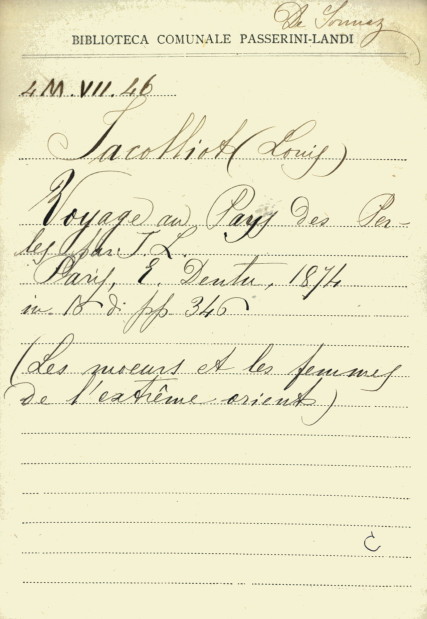 De Sonnaz
BIBLIOTECA COMUNALE PASSERINI-LANDI
4 M. VII. 46
Jacolliot (Louis)
Voyage au Pays des Per-
les par J. L.
Paris, E. Dentu, 1874
in. 18 di pp. 346
(Les moeurs et les femmes
de l'extrême orient)
C